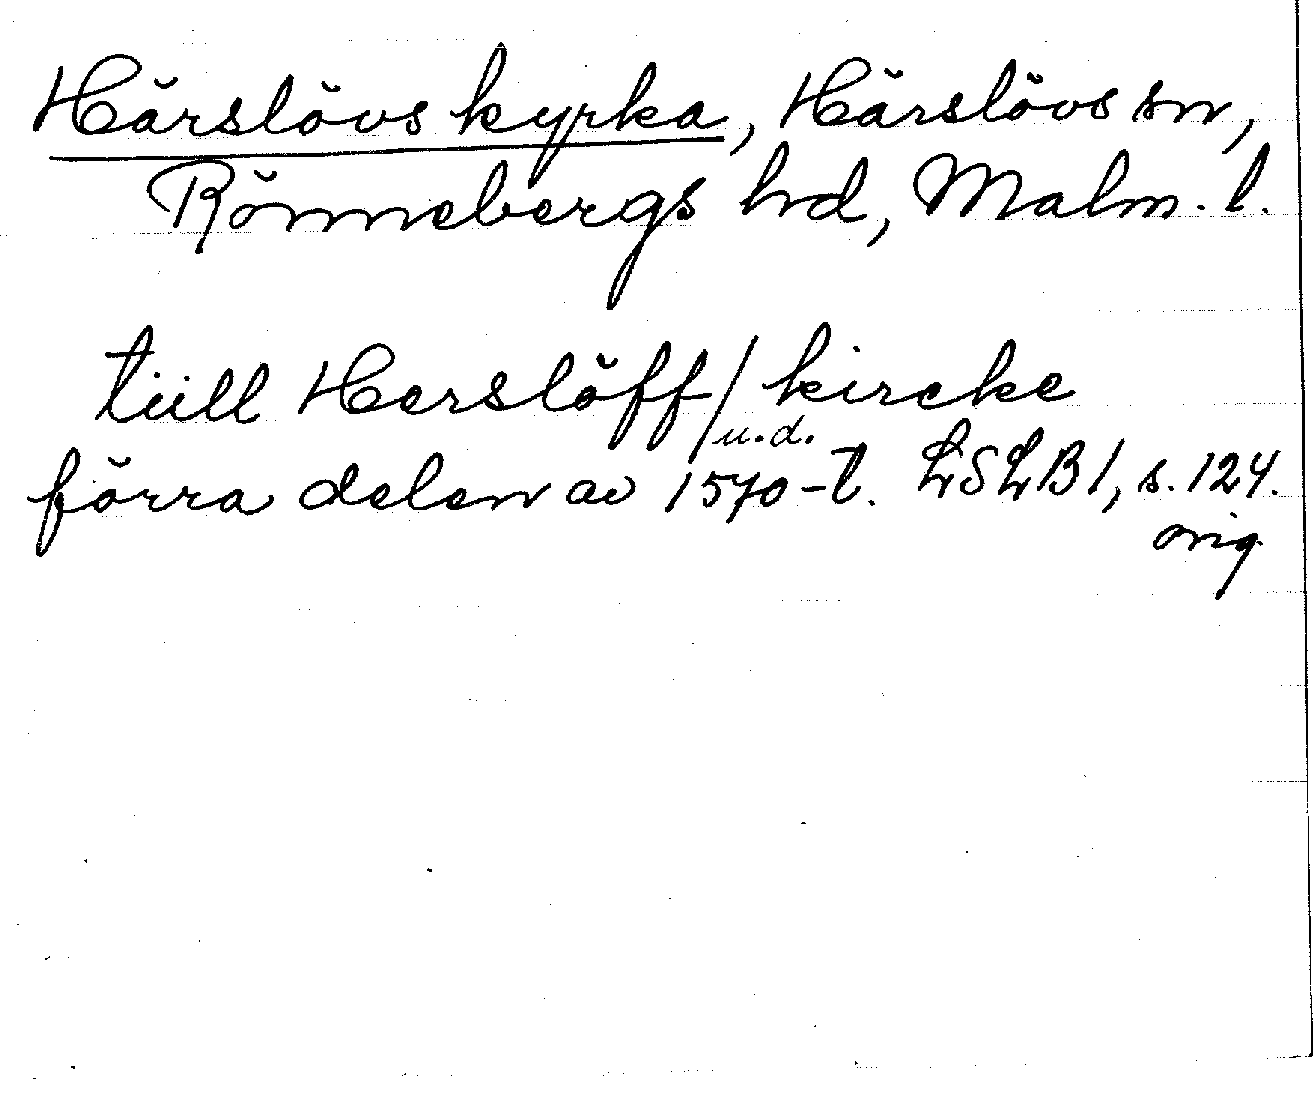 Härslövs kyrka, Härslövs sn,
Rönnebergs hd, Malm. l.
tiill Herslöff/kircke
u.d.
förra delen av 1570-t. LSLB1, s. 124.
orig